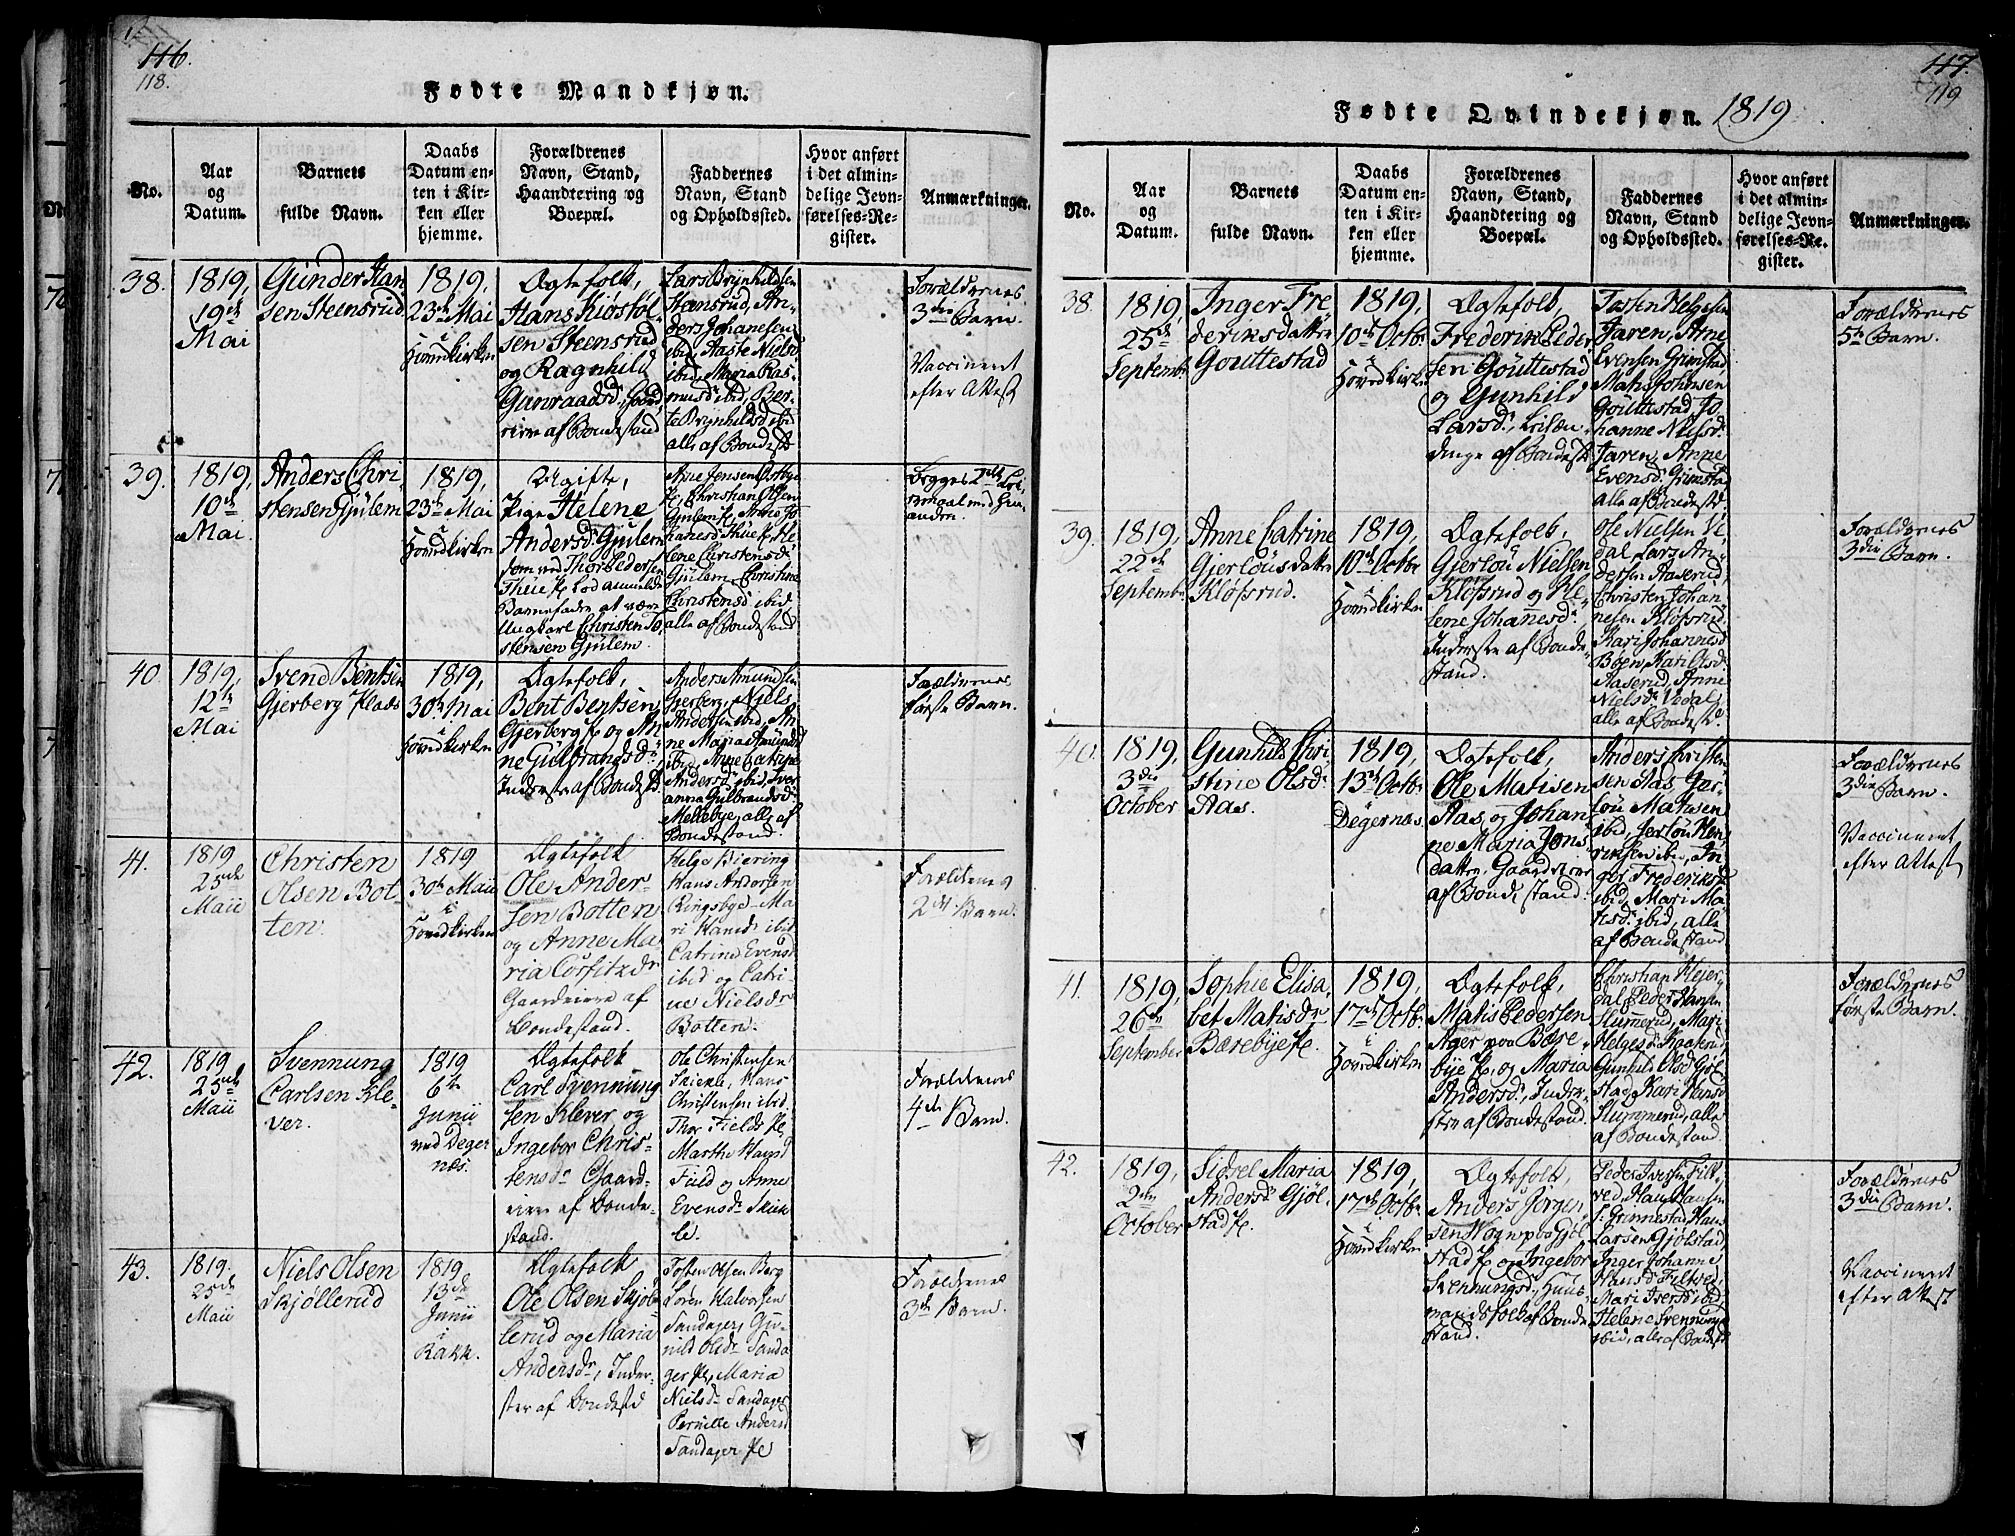 116.
118.
Fødte Mandkjøn.
No.
Aar
og
Datum.
Barnets
fulde Navn.
Daabs
Datum en-
ten i Kir-
ken eller
hjemme.
Forældrenes
Navn, Stand,
Haandtering og
Boepæl.
Faddernes
Navn, Stand
og Opholdssted.
Hvor anført
i det almin-
delige Jevn-
førelses-Re-
gister.
Anmærkninger.
38.
1819,
19de
Mai
Gunder Han
sen Steensrud
1819,
23de Mai
i
Hovedkirken
Ægtefolk,
Hans Kiøstol-
sen Steensrud
og Ragnhild
Gunraadsd.
af Bondestand
Lars Brynhildsen
Hansrud, An-
ders Johanesen
ibid, Aaste Nielsd
ibid, Maria Ras-
musd ibid, Ber-
te Brynhildsd ibid
alle af Bondest.
Forældrenes
3die Barn.
Vaccineret
efter Attest
39.
1819,
10de
Mai
Anders Chri
stensen Gjulem
1819,
23de Mai
i
Hovedkirken
Ugifte,
Pige Helene
Andersd. Gjulem
som ved Thor Pedersen
Thue Pl. lod anmelde
Barnefader at være
Ungkarl Christen To-
stensen Gjulem.
Arne Jensen Ostbye
Pl, Christian Olsen
Gjulem Pl, Anne Jo
hanesd Thue Pl, He
lene Christensd.
Gjulem, Christine
Christensd. ibid
alle af Bondestand
Begges 2det Lei-
ermaal med hin-
anden.
40
1819,
12te
Mai
Svend Bentsen
Gjerberg Plads
1819,
30te Mai
i
Hovedkirken
Ægtefolk,
Bent Bentsen
Gjerberg Pl og An
ne Gulbrandsd.
Inderster af Bondest
Anders Amundsen
Gjerberg, Niels
Andersen ibid, An
ne Maria Amundsd
ibid, Anne Catrine
Andersd. ibid, Sver
anna Gulbrandsd.
Mellebye, alle af
Bondestand.
Forældrenes
første Barn.
41.
1819
25de
Maii
Christen
Olsen Bot-
ten.
1819
30te Maii
i
Hovedkirken
Ægtefolk
Ole Ander-
sen Botten
og Anne Ma
ria Corfitzdr
Gaardeiere af
Bondestand.
Helge Biering
Hans Andersen
Ringsbye Ma
ri Hansd. ibid
Catrine Evensd
ibid og Catri-
ne Nielsdr
Botten.
Forældrenes
2det Barn.
42.
1819
25de
Maii
Svennung
Carlsen Kle-
ver.
1819
6te
Junii
ved Deger
næs.
Ægtefolk
Carl Svennung
sen Klever og
Ingebor Chris-
tensdr Gaard-
eiere af Bonde-
stand.
Ole Christensen
Skiekle, Hans
Christensen ibid
Thor Fields Pl,
Marthe Hansd
Field og Anne
Evensdr Skiek
le.
Forældrenes
4de Barn.
43.
1819.
25de
Maii
Niels Olsen
Skjøllerud
1819
13de
Junii
i
Rakk.
Ægtefolk
Ole Olsen Skjøl-
lerud og Maria
Andersdr, Inder-
ster af Bondestd
Tosten Olsen Berg
Søren Halvorsen
Sandager, Gu-
nild Olsdr Sanda
ger Pl, Maria
Nielsdr Sandager
Pernille Andersd
Sandager Pl
Forældrenes
3die Barn.
117.
119
Fødte Qvindekjøn. 1819.
No.
Aar
og
Datum.
Barnets
fulde Navn.
Daabs
Datum en-
ten i Kir-
ken eller
hjemme.
Forældrenes
Navn, Stand,
Haandtering og
Boepæl.
Faddernes
Navn, Stand
og Opholdssted.
Hvor anført
i det almin-
delige Jevn-
førelses-Re-
gister.
Anmærkninger.
38.
1819,
25de
Septembr
Inger Fre
deriksdatter
Gouttestad
1819,
10de Octbr
i
Hovedkirken
Ægtefolk,
Frederik Peder
sen Gouttestad
og Gunhild
Larsd.
af Bondest.
Tosten Helgesen
Jaren, Arne
Evensen Grimstad
Matis Johansen
Gouttestad, Jo
hanne Nielsd.
Jaren, Anne
Evensd. Grimstad
alle af Bondestd.
Forældrenes
5te Barn.
39.
1819,
22de
Septembr
Anne Catrine
Gjerløusdatter
Kløfsrud.
1819,
10de Octbr
i
Hovedkirken
Ægtefolk,
Gjerlou Nielsen
Kløfsrud og He
lene Johanesd.
Inderster af Bonde-
stand.
Ole Nielsen Ve
dal, Lars An
dersen Aaserud,
Christen Johan-
nesen Kløfsrud,
Kari Johannesd
Boen, Kari Olsd.
Aaserud, Anne
Nielsd. Vedal,
alle af Bondestd.
Forældrenes
3die Barn.
40.
1819,
3die
October
Gunhild Chri
stine Olsd.
Aas.
1819,
13de Octbr
i
Degernæs.
Ægtefolk,
Ole Matisen
Aas, og Johan
ne Maria Jons
datter, Gaardeiere
af Bondestand.
Anders Christen
sen Aas, Gjer
lou Matisen
ibid, Jerlou Hen
riksen ibid, In
ger Frederiksd
ibid, Mari Ma
tisd. ibid, alle
af Bondestand
Forældrenes
3die Barn.
Vaccineret
efter Attest
41.
1819,
26de
September
Sophie Elisa
bet Matisdr
Bærebye Pl.
1819,
17de Octbr
i
Hovedkirken
Ægtefolk,
Matis Pedersen
Ager paa Bære-
bye Pl, og Maria
Andersd., Inder-
ster af Bondestand.
Christian Hejer
dal, Peder Hansen
Slummerud, Mari
Helgesd. Kaaterud
Gunhild Olsd Gjøl
stad, Kari Hansd
Slummerud, alle
af Bondestand.
Forældrenes
første Barn.
42.
1819,
2den
October
Sidsel Maria
Andersd. Gjøl
stad Pl.
1819,
17de Octbr
i
Hovedkirken
Ægtefolk,
Anders Jørgen
sen Wogn paa Gjøl
stad Pl og Ingebor
Svennungsd., Huus
mandsfolk af Bonde
stand.
Peder Iversen Filt-
ved, Hans Hansen
S. Grinnestad, Hans
Larsen Gjølstad,
Inger Johanne
Hansd. Filtved,
Mari Iversd. ibid,
Helene Svennungsd
ibid, alle af Bondest
Forældrenes
3die Barn.
Vaccineret
efter Attest